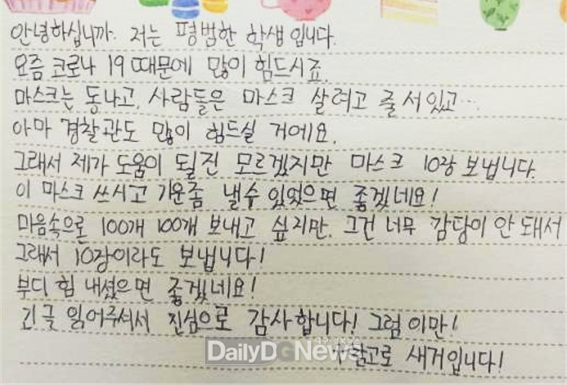 안녕하십니까. 저는 평범한 학생입니다.
요즘 코로나 19 때문에 많이 힘드시죠.
마스크는 동나고, 사람들은 마스크 살려고 줄 서있고...
아마 경찰관도 많이 힘드실 거에요.
그래서 제가 도움이 될진 모르겠지만 마스크 10장 보냅니다.
이 마스크 쓰시고 기운좀 낼수 있었으면 좋겠네요!
마음속으론 100개 100개 보내고 싶지만, 그건 너무 감당이 안 돼서
그래서 10장이라도 보냅니다!
부디 힘 내셨으면 좋겠네요!
긴글 읽어주셔서 진심으로 감사합니다! 그럼 이만!
참고로 새거입니다!
DailyDGNews